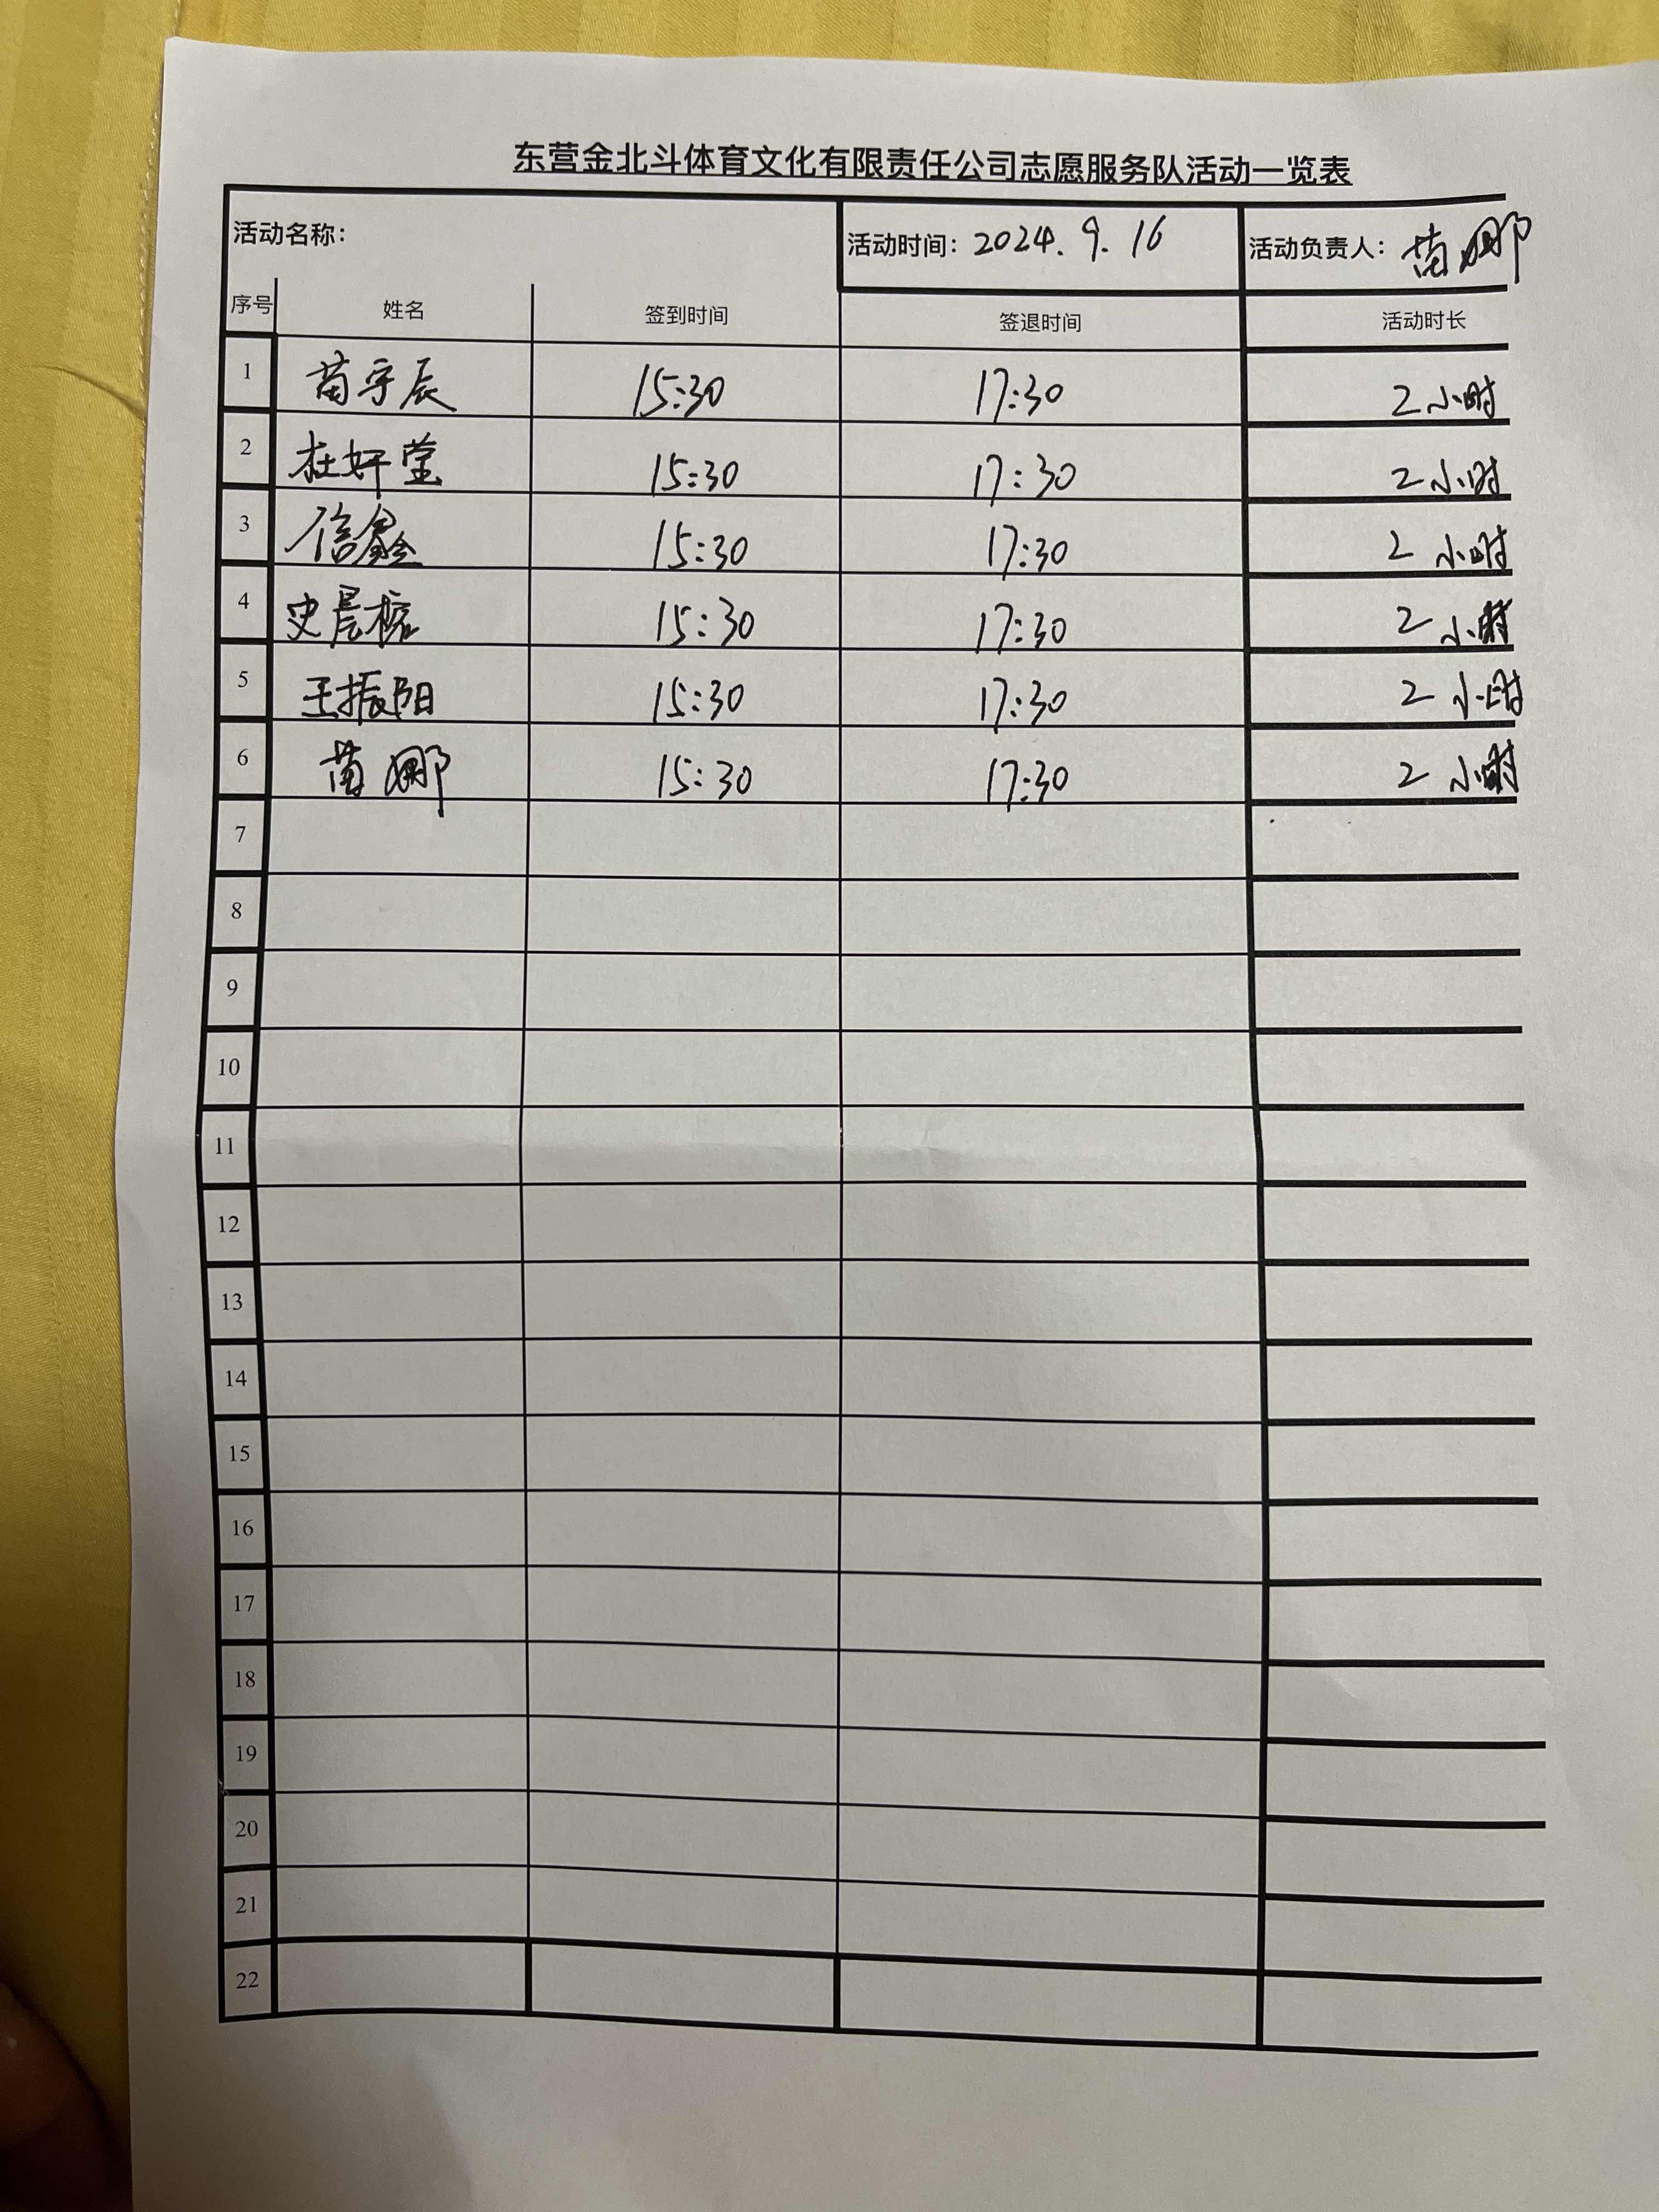 东营金北斗体育文化有限责任公司志愿服务队活动一览表
活动名称： 活动时间：2024.9.16 活动负责人：苗娜
序号 姓名 签到时间 签退时间 活动时长
1 苗宇辰 15:30 17:30 2小时
2 杜妍莹 15:30 17:30 2小时
3 信鑫 15:30 17:30 2小时
4 史晨 15:30 17:30 2小时
5 王振阳 15:30 17:30 2小时
6 苗娜 15:30 17:30 2小时
7
8
9
10
11
12
13
14
15
16
17
18
19
20
21
22